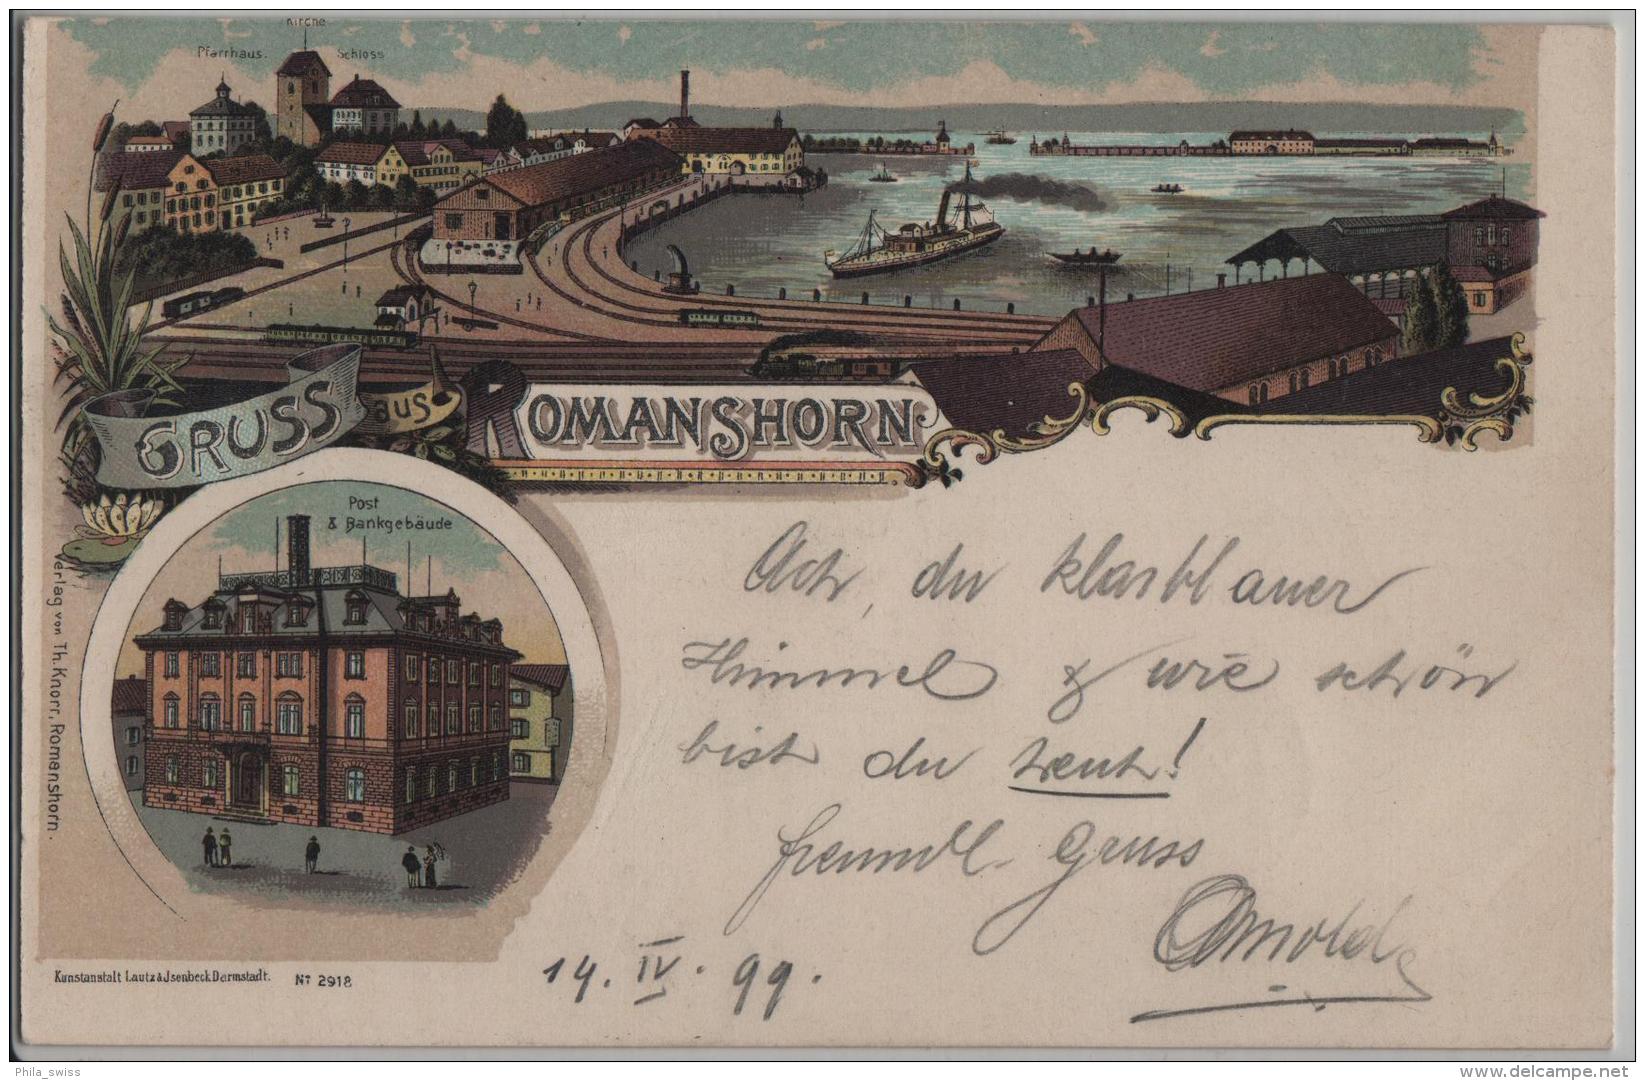 Kirche
Pfarrhaus. Schloss
GRUSS aus ROMANSHORN
Post
& Bankgebäude
Ach, du klarblauer
Himmel & wie schön
bist du heut!
freundl. Gruss
Arnold
14. IV. 99.
Verlag von Th. Knorr, Romanshorn.
Kunstanstalt Lautz & Jsenbeck Darmstadt. No 2918
Phila_swiss
www.delcampe.net